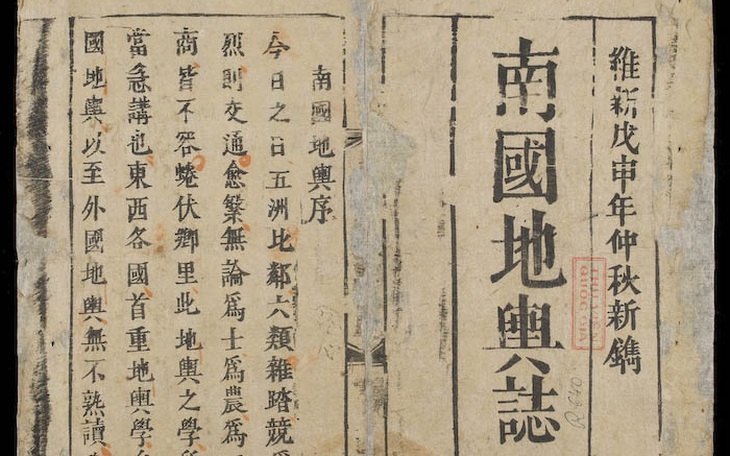 維新戊申年仲秋新鐫
南國地輿誌
南國地輿序
今日之日五洲比鄰六類雜踏競
烈則交通愈繁無論爲士爲農爲
商皆不容蜷伏鄉里此地輿之學
當急講也東西各國首重地輿學
國地輿以至外國地輿無不熟讀